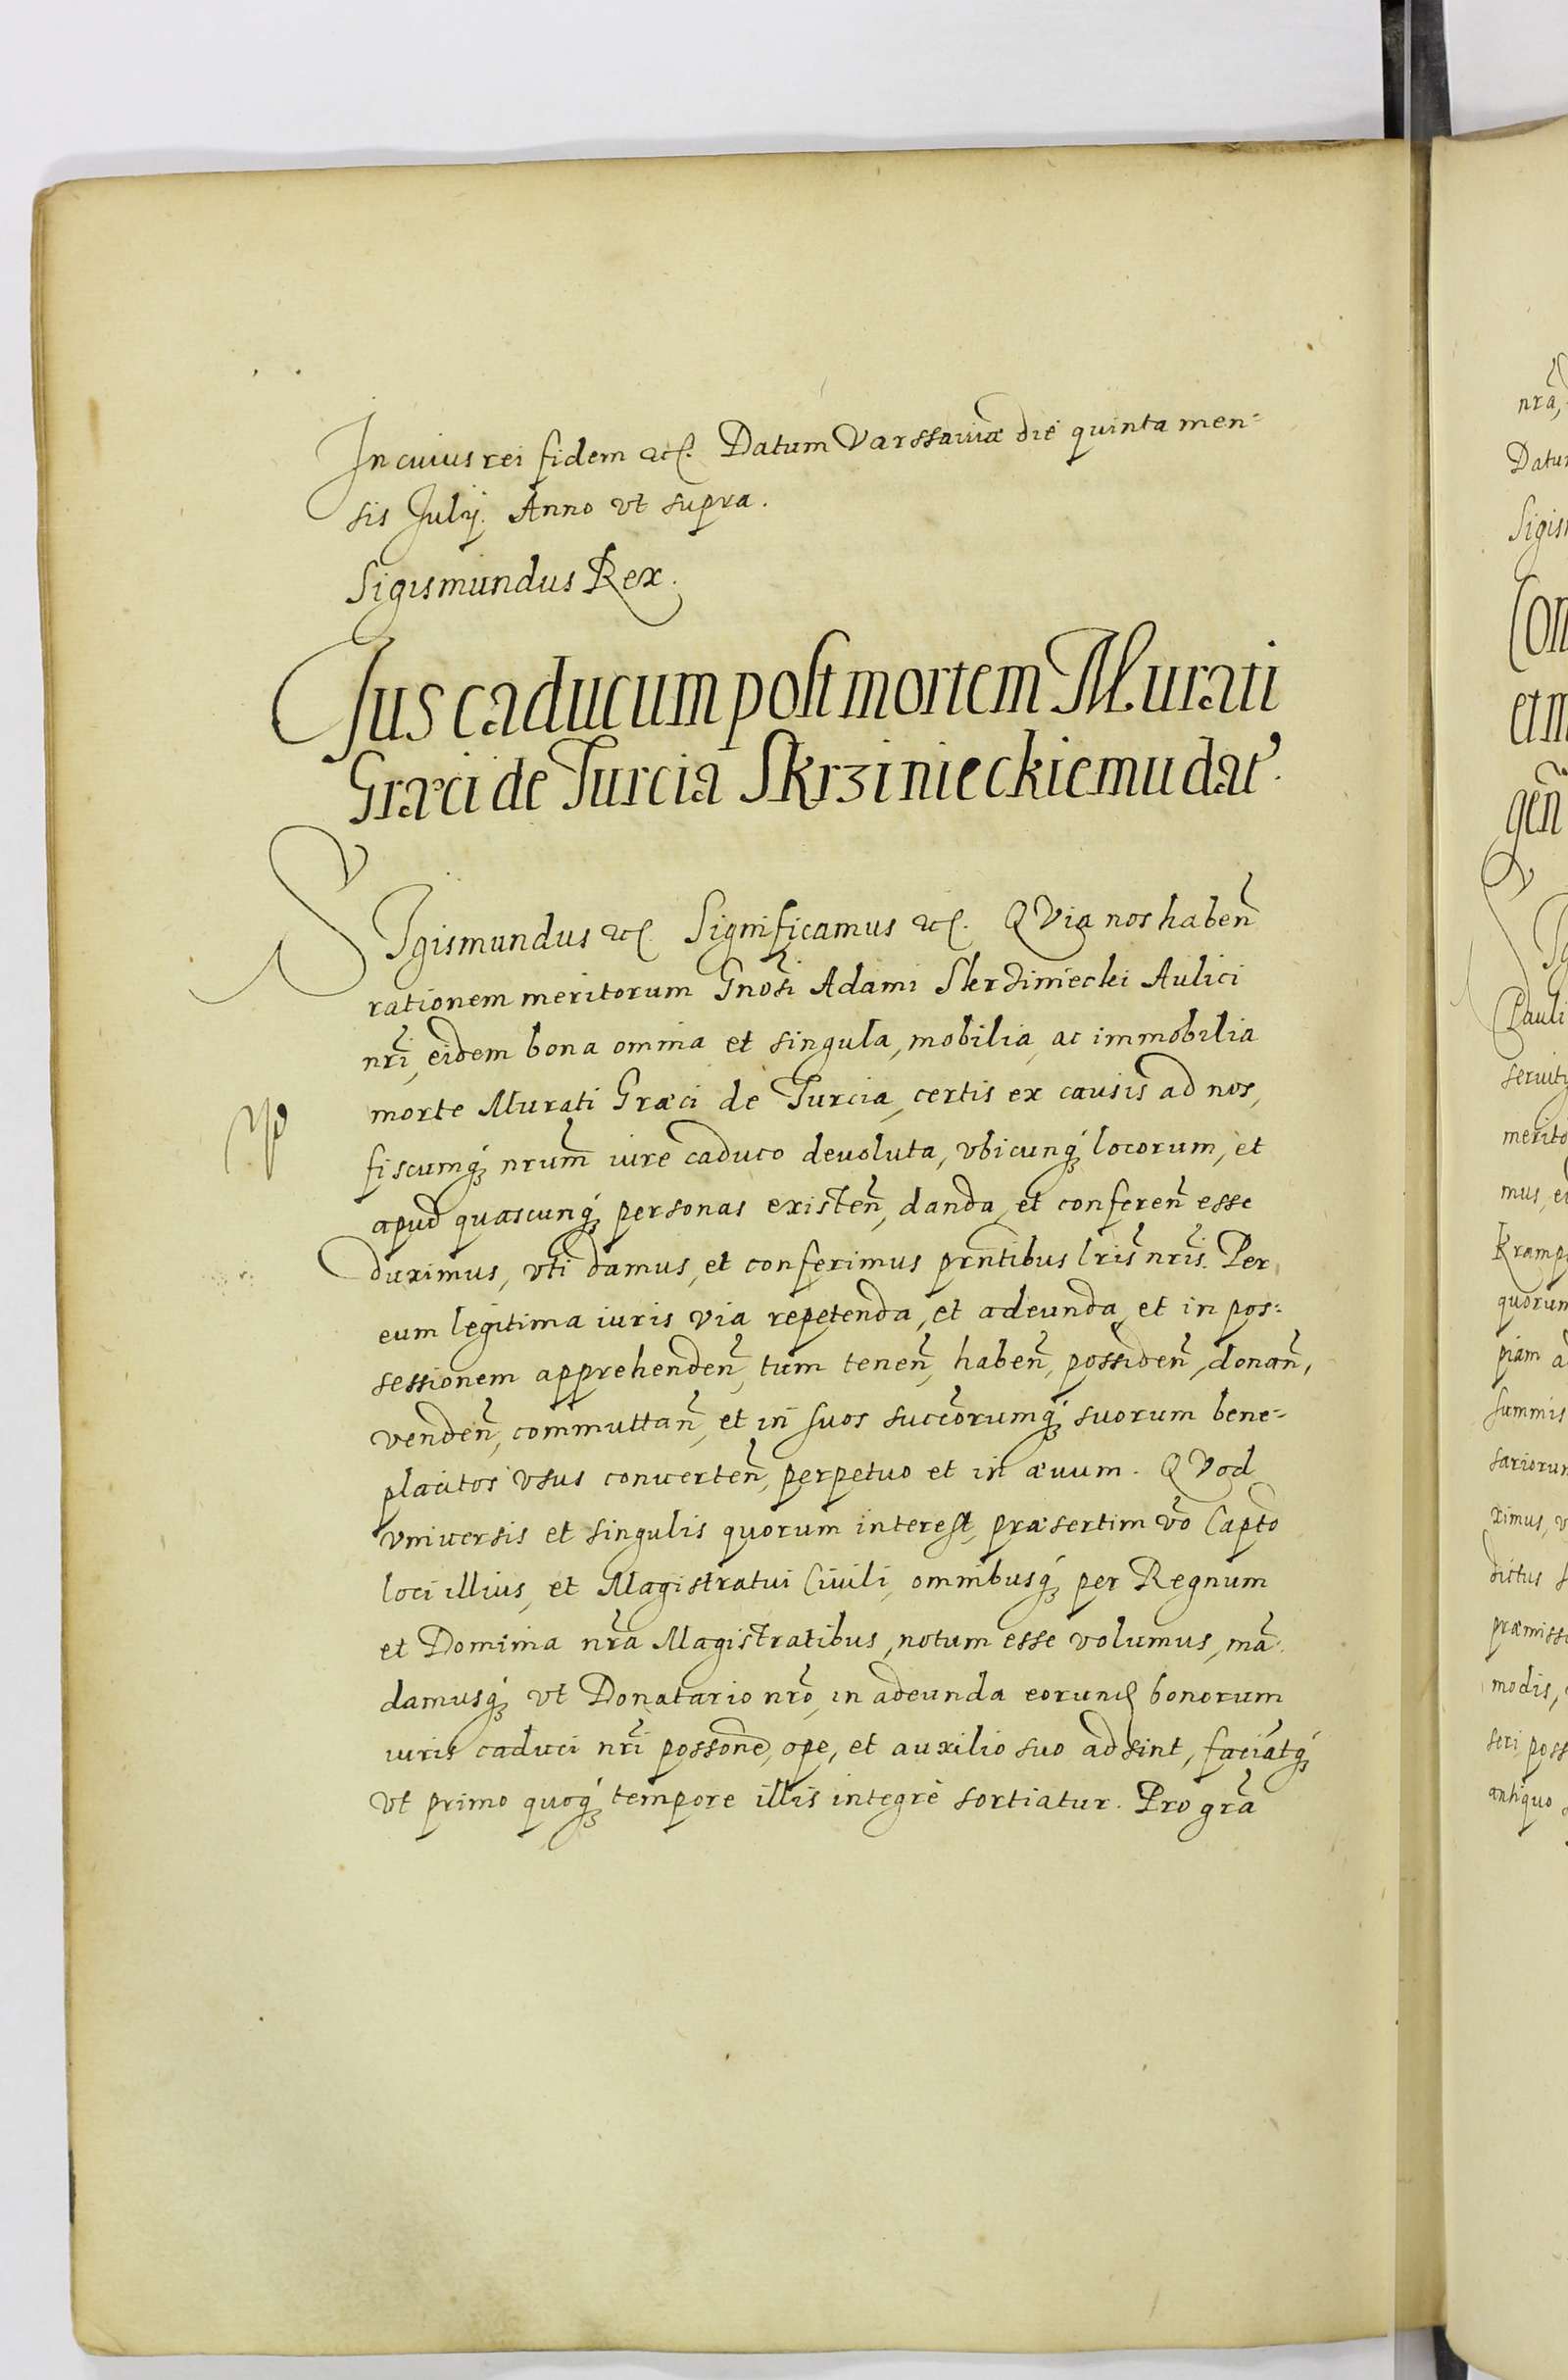 In cuius rei fidem etc. Datum Varssauiæ die quinta men=
sis Julij. Anno vt supra.
Sigismundus Rex.
Jus caducum post mortem Murati
Græci de Turcia Skrzinieckiemu dat'.
SIgismundus etc. Significamus etc. QVia nos haben̄
rationem meritorum Gnōsi Adami Skrziniecki Aulici
nr̄i, eidem bona omnia et singula, mobilia, ac immobilia
morte Murati Græci de Turcia, certis ex causis ad nos,
fiscumq́ꝫ nrūm iure caduco deuoluta, vbicunq́ꝫ locorum, et
apud quascunq́ꝫ personas existen̄, danda, et conferen̄ esse
duximus, vti damus, et conferimus prn̄tibus lrīs nrīs. Per
eum legitima iuris via repetenda, et adeunda, et in pos=
sessionem apprehenden̄, tum tenen̄, haben̄, possiden̄, donan̄,
venden̄, commuttan̄, et in suos succ̄orumq́ꝫ suorum bene=
placitos vsus conuerten̄, perpetuo et in æuum. QVod
vniuersis et singulis quorum interest, præsertim vō Capto
loci illius, et Magistratui Ciuili, omnibusq́ꝫ per Regnum
et Dominia nr̄a Magistratibus, notum esse volumus, mā=
damusq́ꝫ vt Donatario nrō, in adeunda eorund bonorum
iuris caduci nr̄i possone, ope, et auxilio suo adsint, faciātq́ꝫ
vt primo quoq́ꝫ tempore illis integrè sortiatur. Pro grā
nrā,
Datu
Sigis
Con
et m
gen̄
Pauli
seruit
merito
mus, e
Kramp
quorum
piam a
summis
sariorum
ximus, v
dictus
præmiss
modis,
seri, poss
antiquo